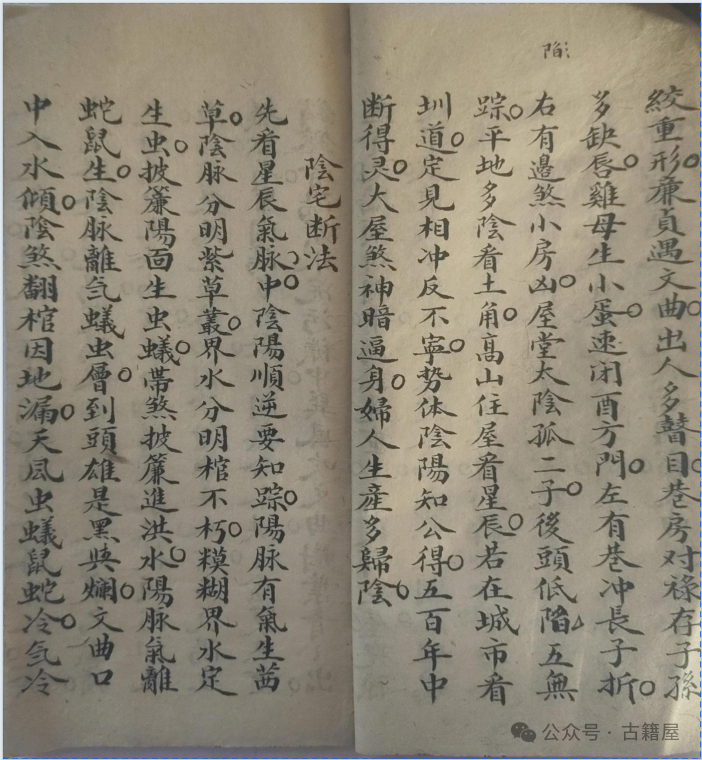 陷
絞重形廉貞遇文曲出人多瞽目巷房对祿存子孫
多缺唇雞母生小蛋速闭酉方門左有巷冲長子折
右有邉煞小房凶屋堂太陰孤二子後頭低陷五無
踪平地多陰看土角高山住屋看星辰若在城市看
圳道定見相冲反不寧势体陰陽知公得五百年中
断得灵大屋煞神暗逼身婦人生産多歸陰
陰宅断法
先看星辰氣脉中陰陽順逆要知踪陽脉有氣生茜
草陰脉分明紫草叢界水分明棺不朽糢糊界水定
生虫披簾陽面生虫蟻帯煞披簾進洪水陽脉氣離
蛇鼠生陰脉離気蟻虫層到頭雄是黑與爛文曲口
中入水傾陰煞翻棺因地漏天風虫蟻鼠蛇冷気冷
公众号·古籍屋